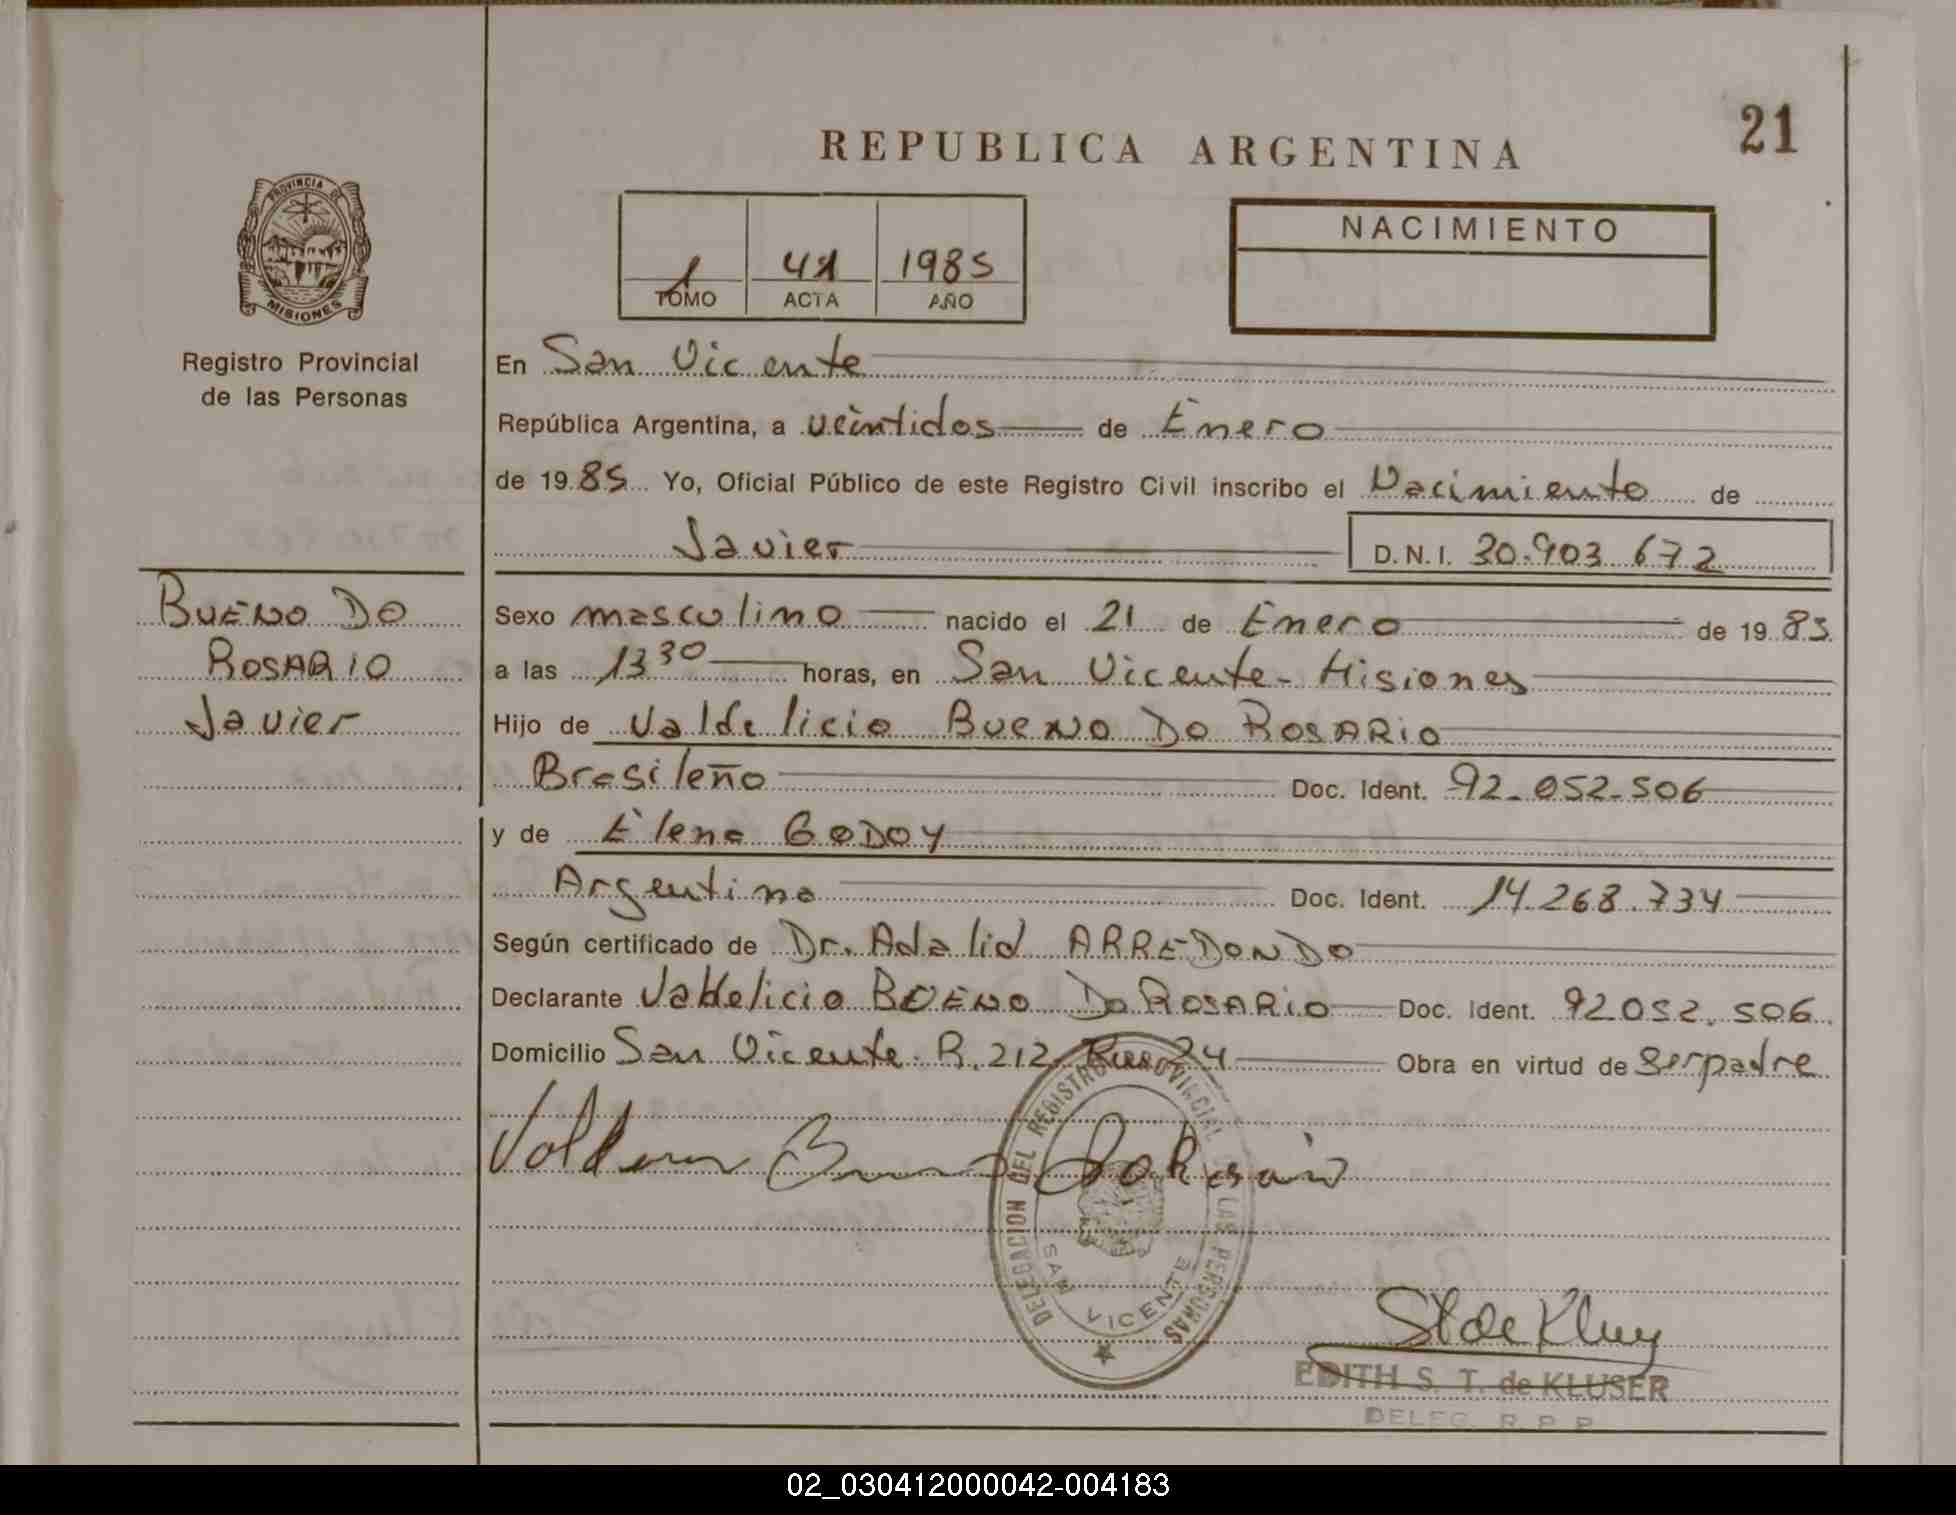 21
REPUBLICA ARGENTINA
PROVINCIA DE
MISIONES
Registro Provincial
de las Personas
1 41 1985
TOMO ACTA AÑO
NACIMIENTO
En San Vicente
República Argentina, a veintidos de Enero
de 1985 Yo, Oficial Público de este Registro Civil inscribo el Nacimiento de
Javier D.N.I. 30.903.672
BUENO DO
ROSARIO
Javier
Sexo masculino nacido el 21 de Enero de 1985
a las 13 30 horas, en San Vicente - Misiones
Hijo de Valdelicio BUENO DO ROSARIO
Brasileño Doc. Ident. 92.052.506
y de Elena GODOY
Argentina Doc. Ident. 14.268.734
Según certificado de Dr. Adalid ARREDONDO
Declarante Valdelicio BUENO DO ROSARIO Doc. Ident. 92052.506
Domicilio San Vicente R. 212 24 Obra en virtud de ser padre
DELEGACION DEL REGISTRO PROVINCIAL DE LAS PERSONAS
SAN VICENTE
EDITH S. T. de KLUSER
DELEG. R. P. P.
02_030412000042-004183